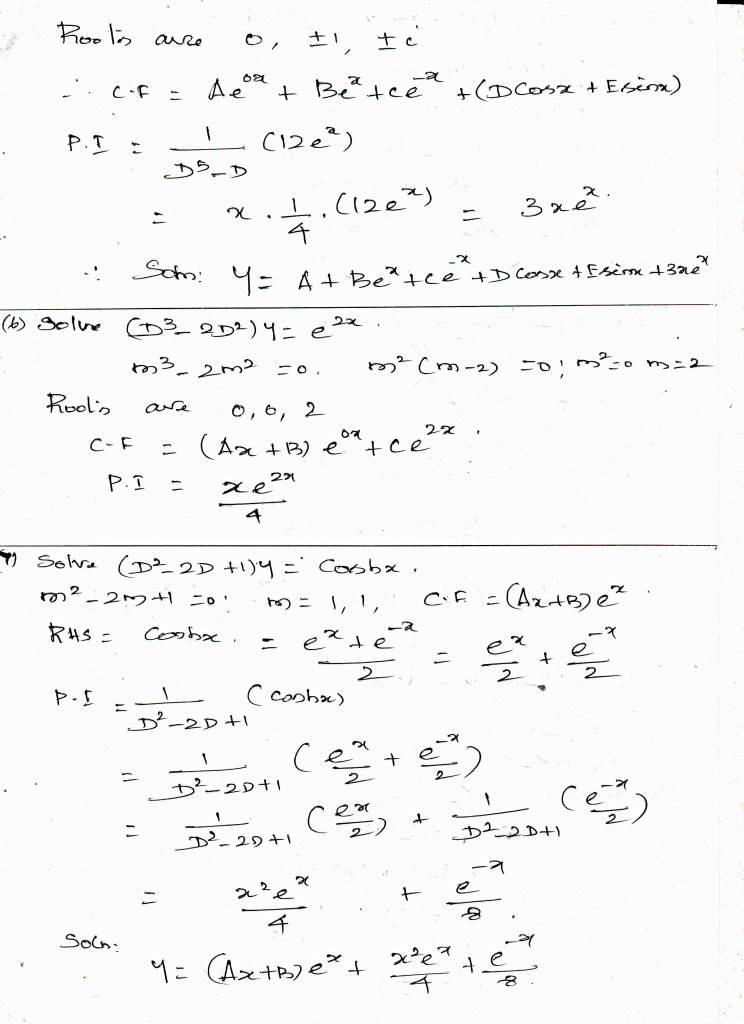 Roots are 0, ±1, ±i
∴ C.F = Ae^{0x} + Be^{x} + Ce^{-x} + (D Cosx + E sinx)
P.I = \frac{1}{D^5-D} (12e^{x})
= x · \frac{1}{4} · (12e^{x}) = 3xe^{x}.
∴ Soln: y = A + Be^{x} + Ce^{-x} + D Cosx + E sinx + 3xe^{x}
(b) Solve (D^3 - 2D^2) y = e^{2x}.
m^3 - 2m^2 = 0. m^2 (m-2) = 0; m^2 = 0 m = 2
Roots are 0, 0, 2
C-F = (Ax + B) e^{0x} + Ce^{2x}.
P.I = \frac{xe^{2x}}{4}
7) Solve (D^2 - 2D + 1) y = Coshx.
m^2 - 2m + 1 = 0; m = 1, 1, C.F. = (Ax+B) e^{x}.
RHS = Coshx. = \frac{e^{x} + e^{-x}}{2} = \frac{e^{x}}{2} + \frac{e^{-x}}{2}
P.I = \frac{1}{D^2-2D+1} (Coshx)
= \frac{1}{D^2-2D+1} (\frac{e^{x}}{2} + \frac{e^{-x}}{2})
= \frac{1}{D^2-2D+1} (\frac{e^{x}}{2}) + \frac{1}{D^2-2D+1} (\frac{e^{-x}}{2})
= \frac{x^2e^{x}}{4} + \frac{e^{-x}}{8}.
Soln:
y = (Ax+B) e^{x} + \frac{x^2e^{x}}{4} + \frac{e^{-x}}{8}.